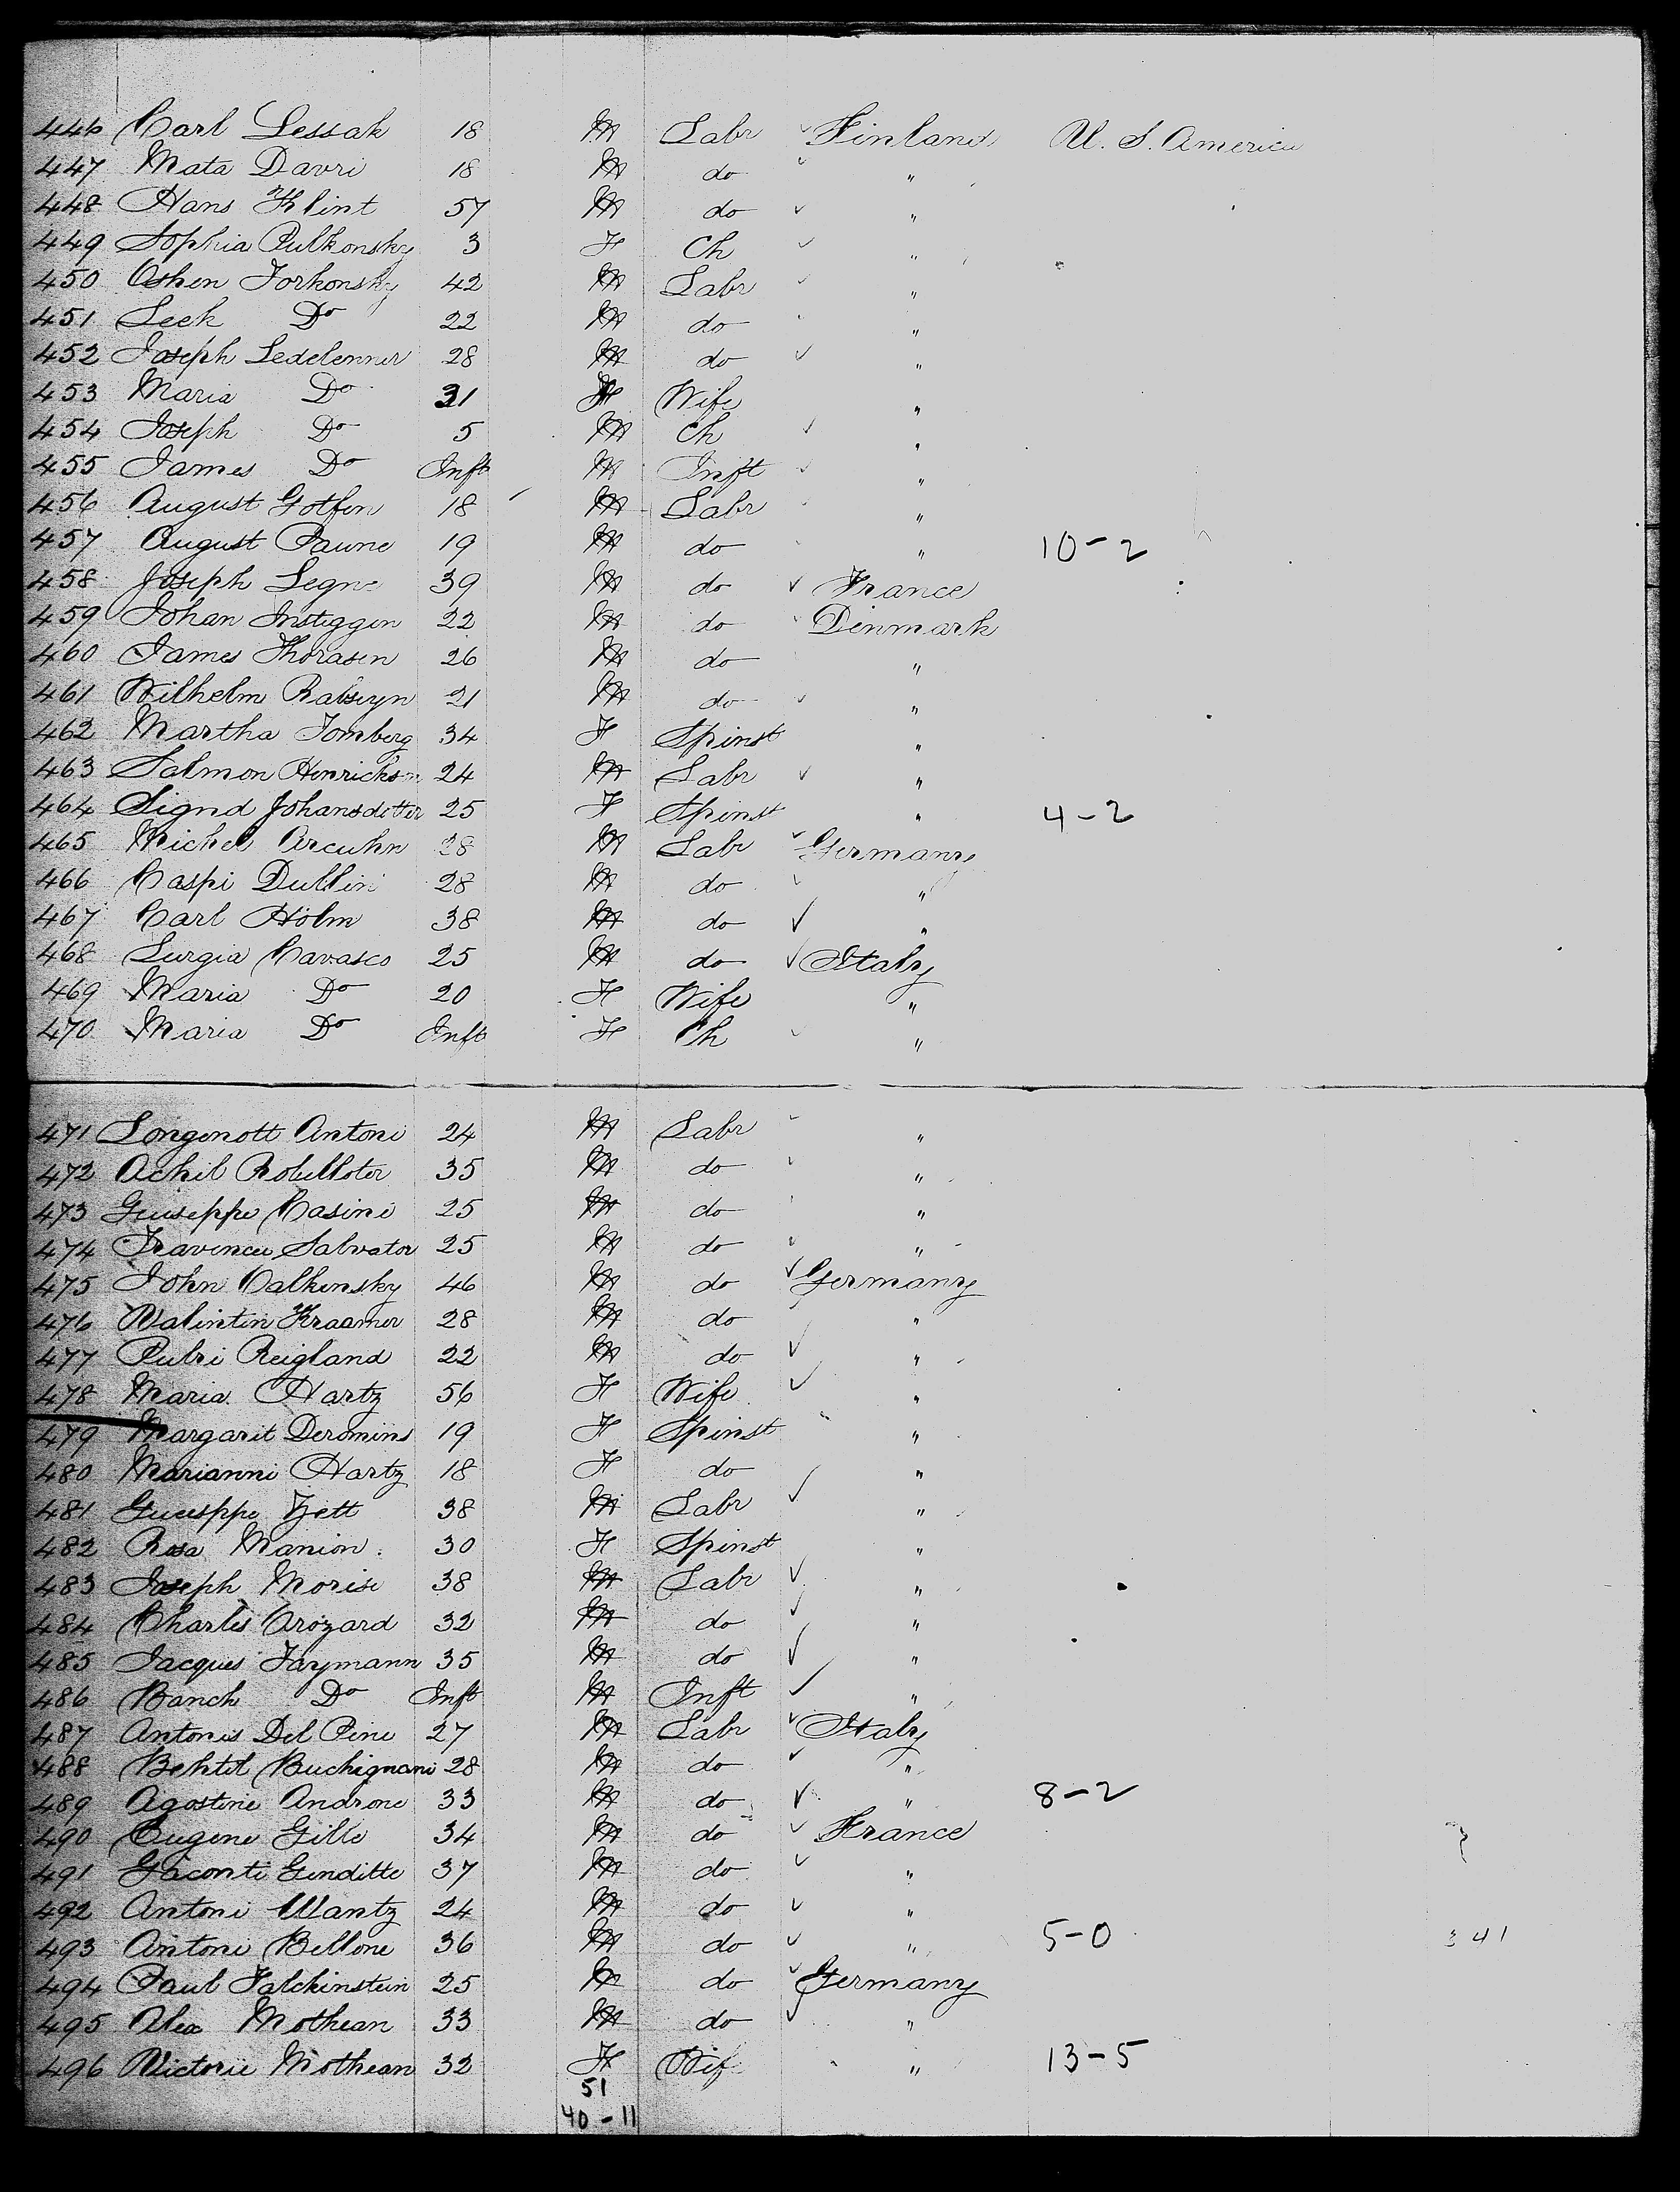 446 Carl Lessak 18 M Labr ✓ Finland U. S. America
447 Mata Davri 18 M do "
448 Hans Klint 57 M do ✓ "
449 Sophia Pulkonsky 3 F Ch ✓ "
450 Oshen Jorkonsky 42 M Labr "
451 Leek Do 22 M do "
452 Joseph Ledelenner 28 M do ✓ "
453 Maria Do 31 F Wife "
454 Joseph Do 5 M Ch ✓ "
455 James Do Inft M Inft "
456 August Gotfen 18 M Labr "
457 August Paune 19 M do " 10-2
458 Joseph Legne 39 M do ✓ France
459 Johan Insteggen 22 M do Denmark
460 James Thorasen 26 M do "
461 Wilhelm 21 M do "
462 Martha Tomberg 34 F Spinst "
463 Salmon Henrickson 24 M Labr ✓ "
464 Signd Johansdotter 25 F Spinst " 4-2
465 Michel Arcuhn 28 M Labr ✓ Germany
466 Caspi Dullin 28 M do "
467 Carl Holm 38 M do ✓ "
468 Lurgia Cavasco 25 M do ✓ Italy
469 Maria Do 20 F Wife "
470 Maria Do Inft F Ch "
471 Longenott Antoni 24 M Labr "
472 Achil 35 M do "
473 Guiseppe Casini 25 M do "
474 Salvator 25 M do "
475 John Calkinsky 46 M do ✓ Germany
476 Valintin Kraamer 28 M do "
477 Reigland 22 M do ✓ "
478 Maria Hartz 56 F Wife ✓ "
479 Margarit Deromins 19 F Spinst "
480 Marianni Hartz 18 F do "
481 Guiesppe Zett 38 M Labr ✓ "
482 Rosa Manion 30 F Spinst "
483 Joseph Morise 38 M Labr ✓ "
484 Charles Crozard 32 M do ✓ "
485 Jacques Jaymann 35 M do ✓ "
486 Banch Do Inft M Inft ✓ "
487 Antonis Del Pine 27 M Labr ✓ Italy
488 Buchignani 28 M do ✓ "
489 Agostine Androne 33 M do ✓ " 8-2
490 Eugene Gille 34 M do ✓ France
491 Giaconti Genditte 37 M do ✓ "
492 Antoni Wantz 24 M do ✓ "
493 Antoni Bellone 36 M do ✓ " 5-0 341
494 Paul Falckinstein 25 M do ✓ Germany
495 Alex Mothean 33 M do ✓ "
496 Victorie Mothean 32 F Wif " 13-5
51
40-11